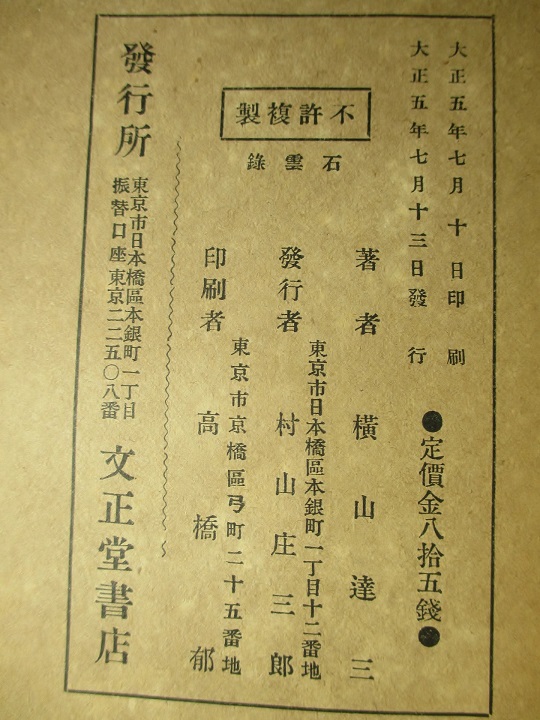 大正五年七月十日印刷
大正五年七月十三日發行
●定價金八拾五錢●
不許複製
石雲錄
著者 橫山達三
東京市日本橋區本銀町一丁目十二番地
發行者 村山庄三郎
東京市京橋區弓町二十五番地
印刷者 高橋郁
發行所
東京市日本橋區本銀町一丁目
振替口座東京二二五〇八番
文正堂書店